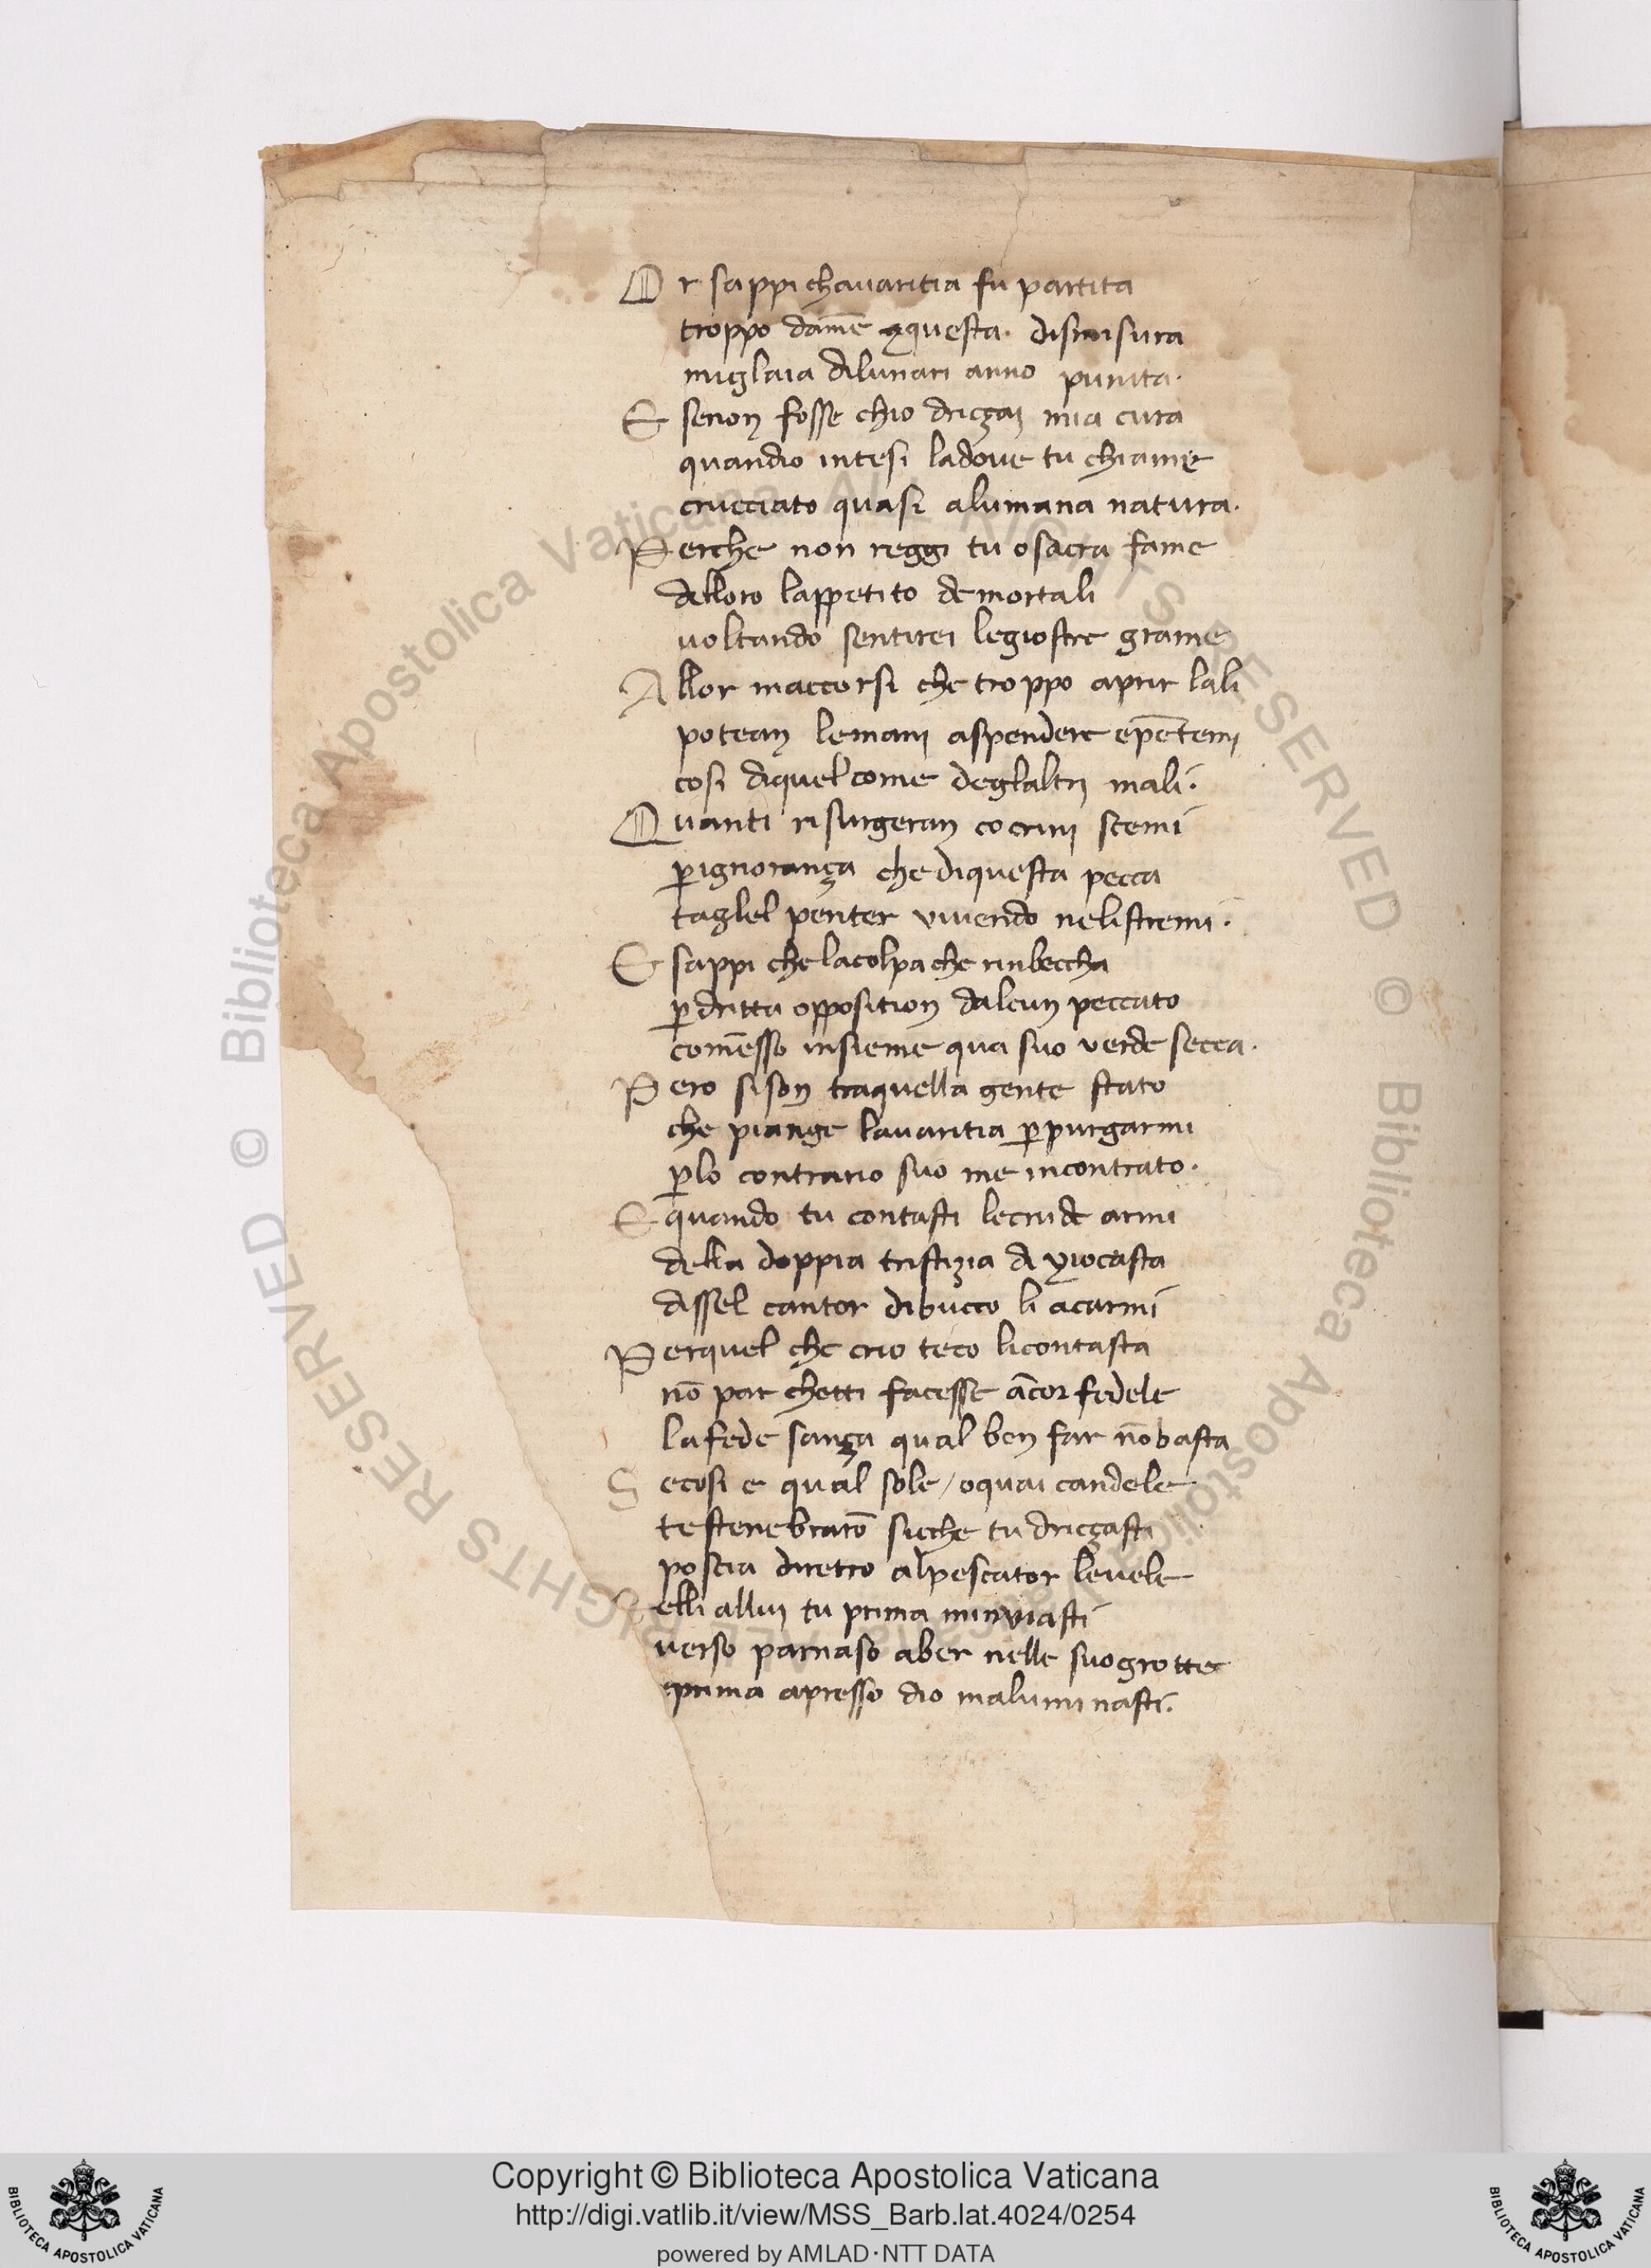 Or sappi chauaritia fu partita
troppo dame et questa dismisura
miglaia dilunari anno punita.
E senon fosse chio driçai mia cura
quandio intesi ladoue tu chiame
crucciato quasi alumana natura.
Perche non reggi tu osacra fame
delloro lappetito demortali
uoltando sentirei legiostre grame
Allor maccorsi che troppo aprir lali
potean lemani aspendere epētemi
cosi diquel come deglaltri mali.
Quanti risurgeran cocrini scemi
p̲ignorança che diquesta pecca
taglel penter viuendo nelistremi.
E sappi chelacolpa che rinbeccha
p̲dritta opposition dalcun peccato
comēsso insieme qua suo verde secca.
Pero sison traquella gente stato
che piange lauaritia p̲purgarmi
p̲lo contrario suo me incontrato.
E quando tu contasti lecrude armi
della doppia tristizia di yiocasta
dissel cantor dibucco li acarmi
Perquel che crio teco licontasta
nō par chetti facesse ācor fedele
lafede sança qual ben far nō basta
Secosi e qual sole / oquai candele
testenebrarō sicche tu driçasti
poscia diretro alpescator leuele
Eelli allui tu prima minviasti
verso parnaso aber nelle suogrotte
eprima apresso dio malumi nasti.
Copyright © Biblioteca Apostolica Vaticana
http://digi.vatlib.it/view/MSS_Barb.lat.4024/0254
powered by AMLAD·NTT DATA